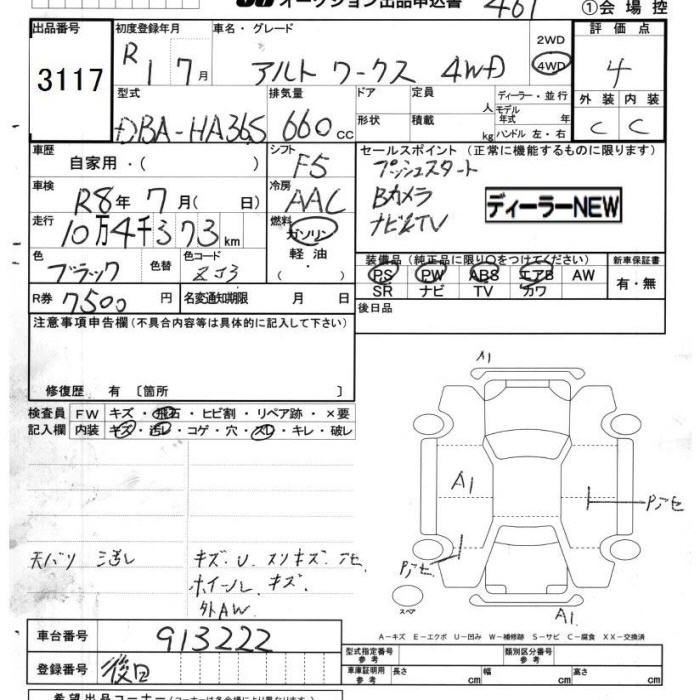 オークション出品申込書 461 ①会場控
出品番号 3117
初度登録年月 R1 7月
車名・グレード アルト ワークス 4WD
2WD
4WD
評価点 4
外装 内装
C C
型式 DBA-HA36S
排気量 660 cc
ドア 形状
定員 人
積載 kg
ディーラー・並行
モデル年式 年
ハンドル 左・右
車歴 自家用・( )
シフト F5
車検 R8年 7月( 日)
冷房 AAC
走行 10万4千373km
燃料 ガソリン
軽油
・( )
色 ブラック 色替
色コード ZJ3
R券 7500円
名変通知期限 月 日
セールスポイント (正常に機能するものに限ります)
プッシュスタート
Bカメラ
ナビTV
ディーラーNEW
装備品(純正品に限り○をつけてください)
PS PW ABS エアB AW
SR ナビ TV カワ
新車保証書
有・無
後日品
注意事項申告欄(不具合内容等は具体的に記入して下さい)
修復歴 有 〔箇所 〕
検査員記入欄
FW キズ・飛石・ヒビ割・リペア跡・×要
内装 キズ・汚レ・コゲ・穴・スレ・キレ・破レ
天バリ 汚レ
キズ・U スリキズ
ホイール キズ
外AW
A1
A1
Pアセ
Pアセ
スペア
A1
A-キズ E-エクボ U-凹み W-補修跡 S-サビ C-腐食 XX-交換済
車台番号 913222
登録番号 後日
型式指定番号 参考
類別区分番号 参考
車庫証明用 参考
長さ cm
幅 cm
高さ cm
希望出品コーナー